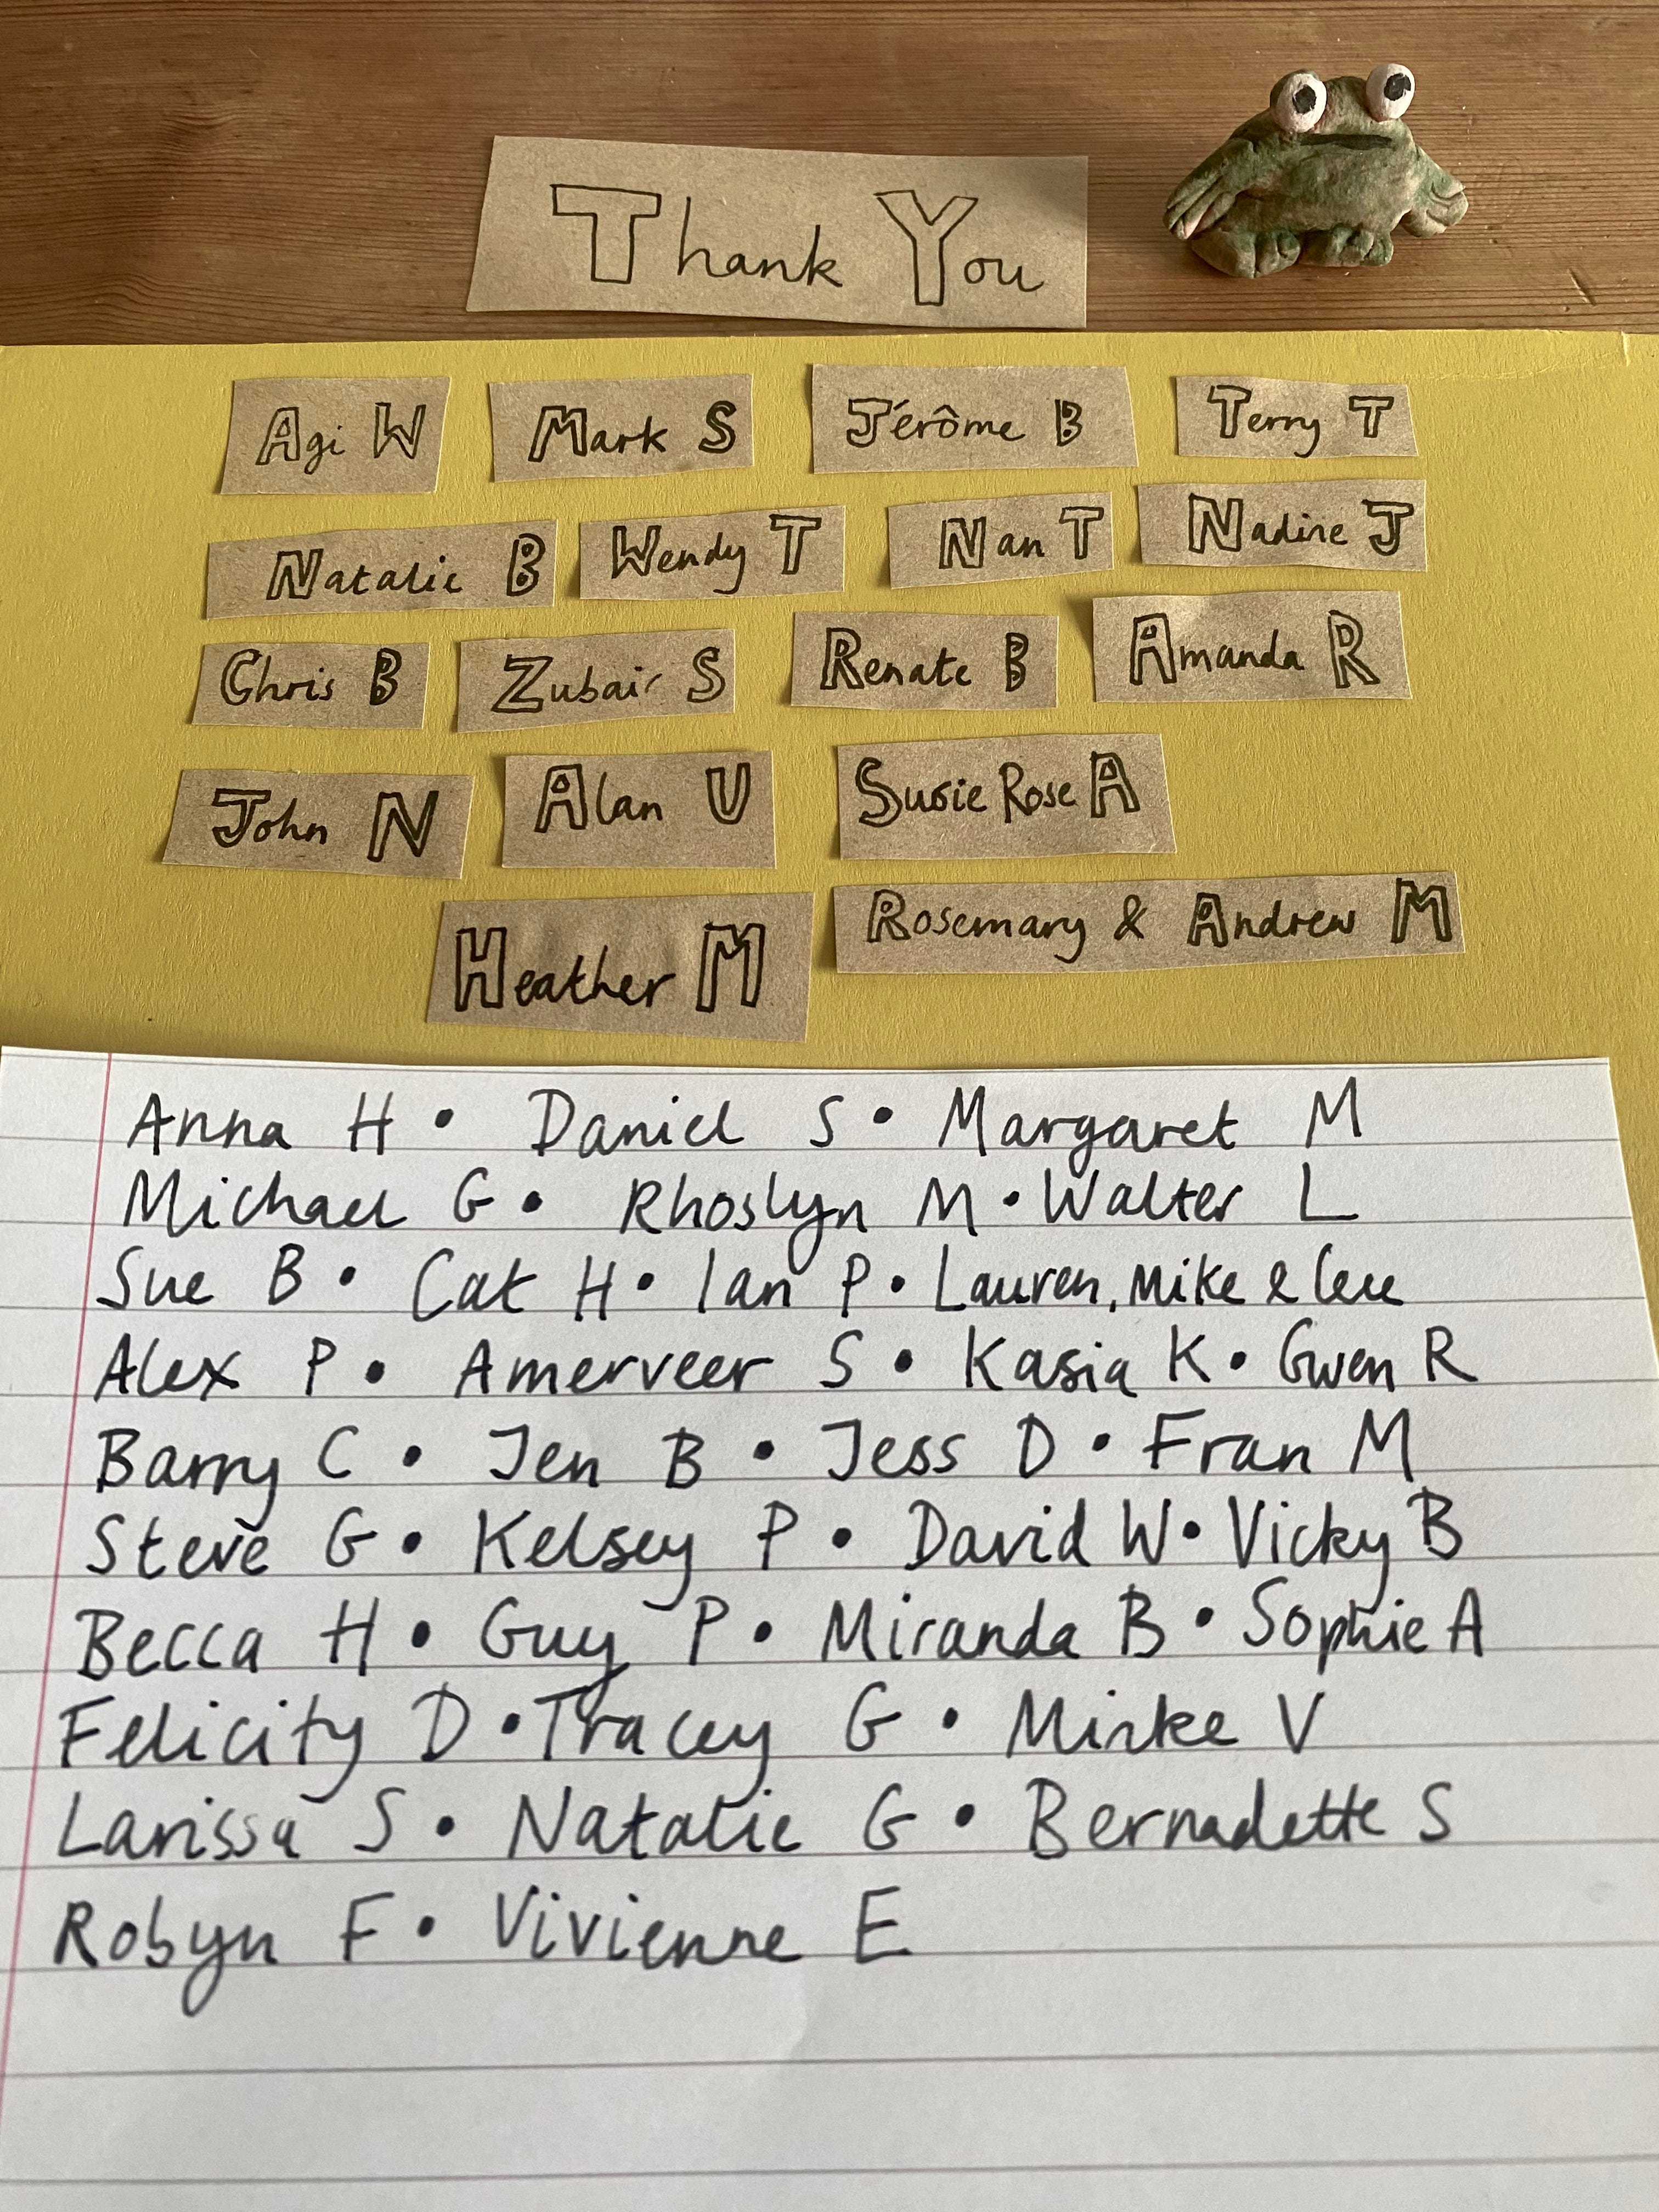 Thank You
Agi W Mark S Jérôme B Terry T
Natalie B Wendy T Nan T Nadine J
Chris B Zubair S Renate B Amanda R
John N Alan U Susie Rose A
Heather M Rosemary & Andrew M
Anna H • Daniel S • Margaret M
Michael G • Rhoslyn M • Walter L
Sue B • Cat H • Ian P • Lauren, Mike &
Alex P • Amerveer S • Kasia K • Gwen R
Barry C • Jen B • Jess D • Fran M
Steve G • Kelsey P • David W • Vicky B
Becca H • Guy P • Miranda B • Sophie A
Felicity D • Tracey G • Mirke V
Larissa S • Natalie G • Bernadette S
Robyn F • Vivienne E